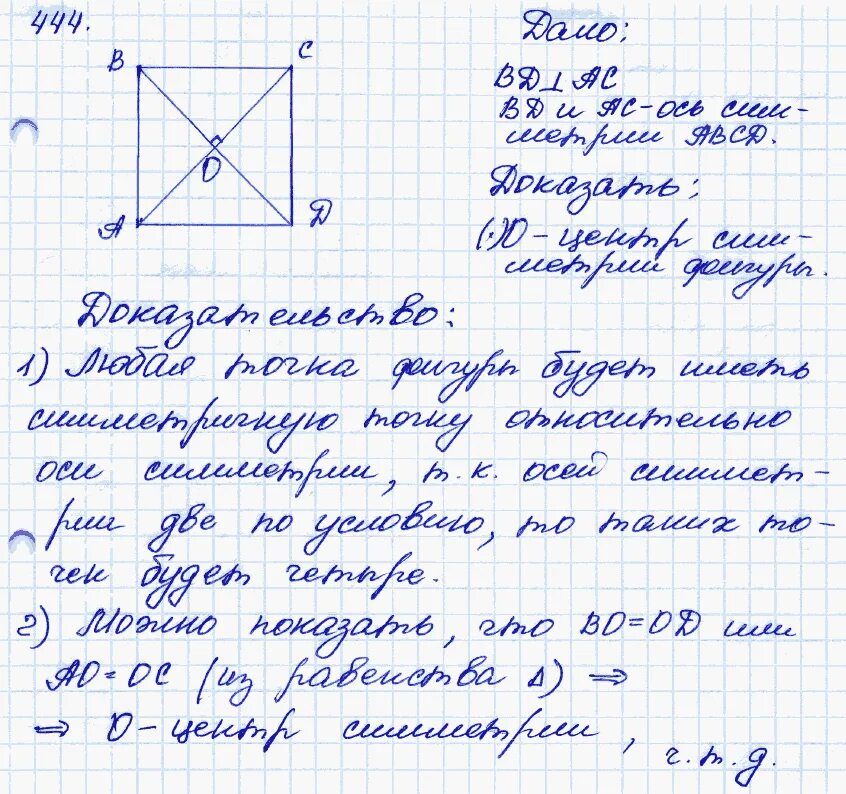 444.
B
C
O
A
D
Дано:
BD⊥AC
BD и AC-ось сим-
метрии ABCD.
Доказать:
(·)O-центр сим-
метрии фигуры.
Доказательство:
1) Любая точка фигуры будет иметь
симметричную точку относительно
оси симметрии, т.к. осей симмет-
рии две по условию, то таких то-
чек будет четыре.
2) Можно показать, что BO=OD или
AO=OC (из равенства Δ) ⇒
⇒ O-центр симметрии,
ч.т.д.